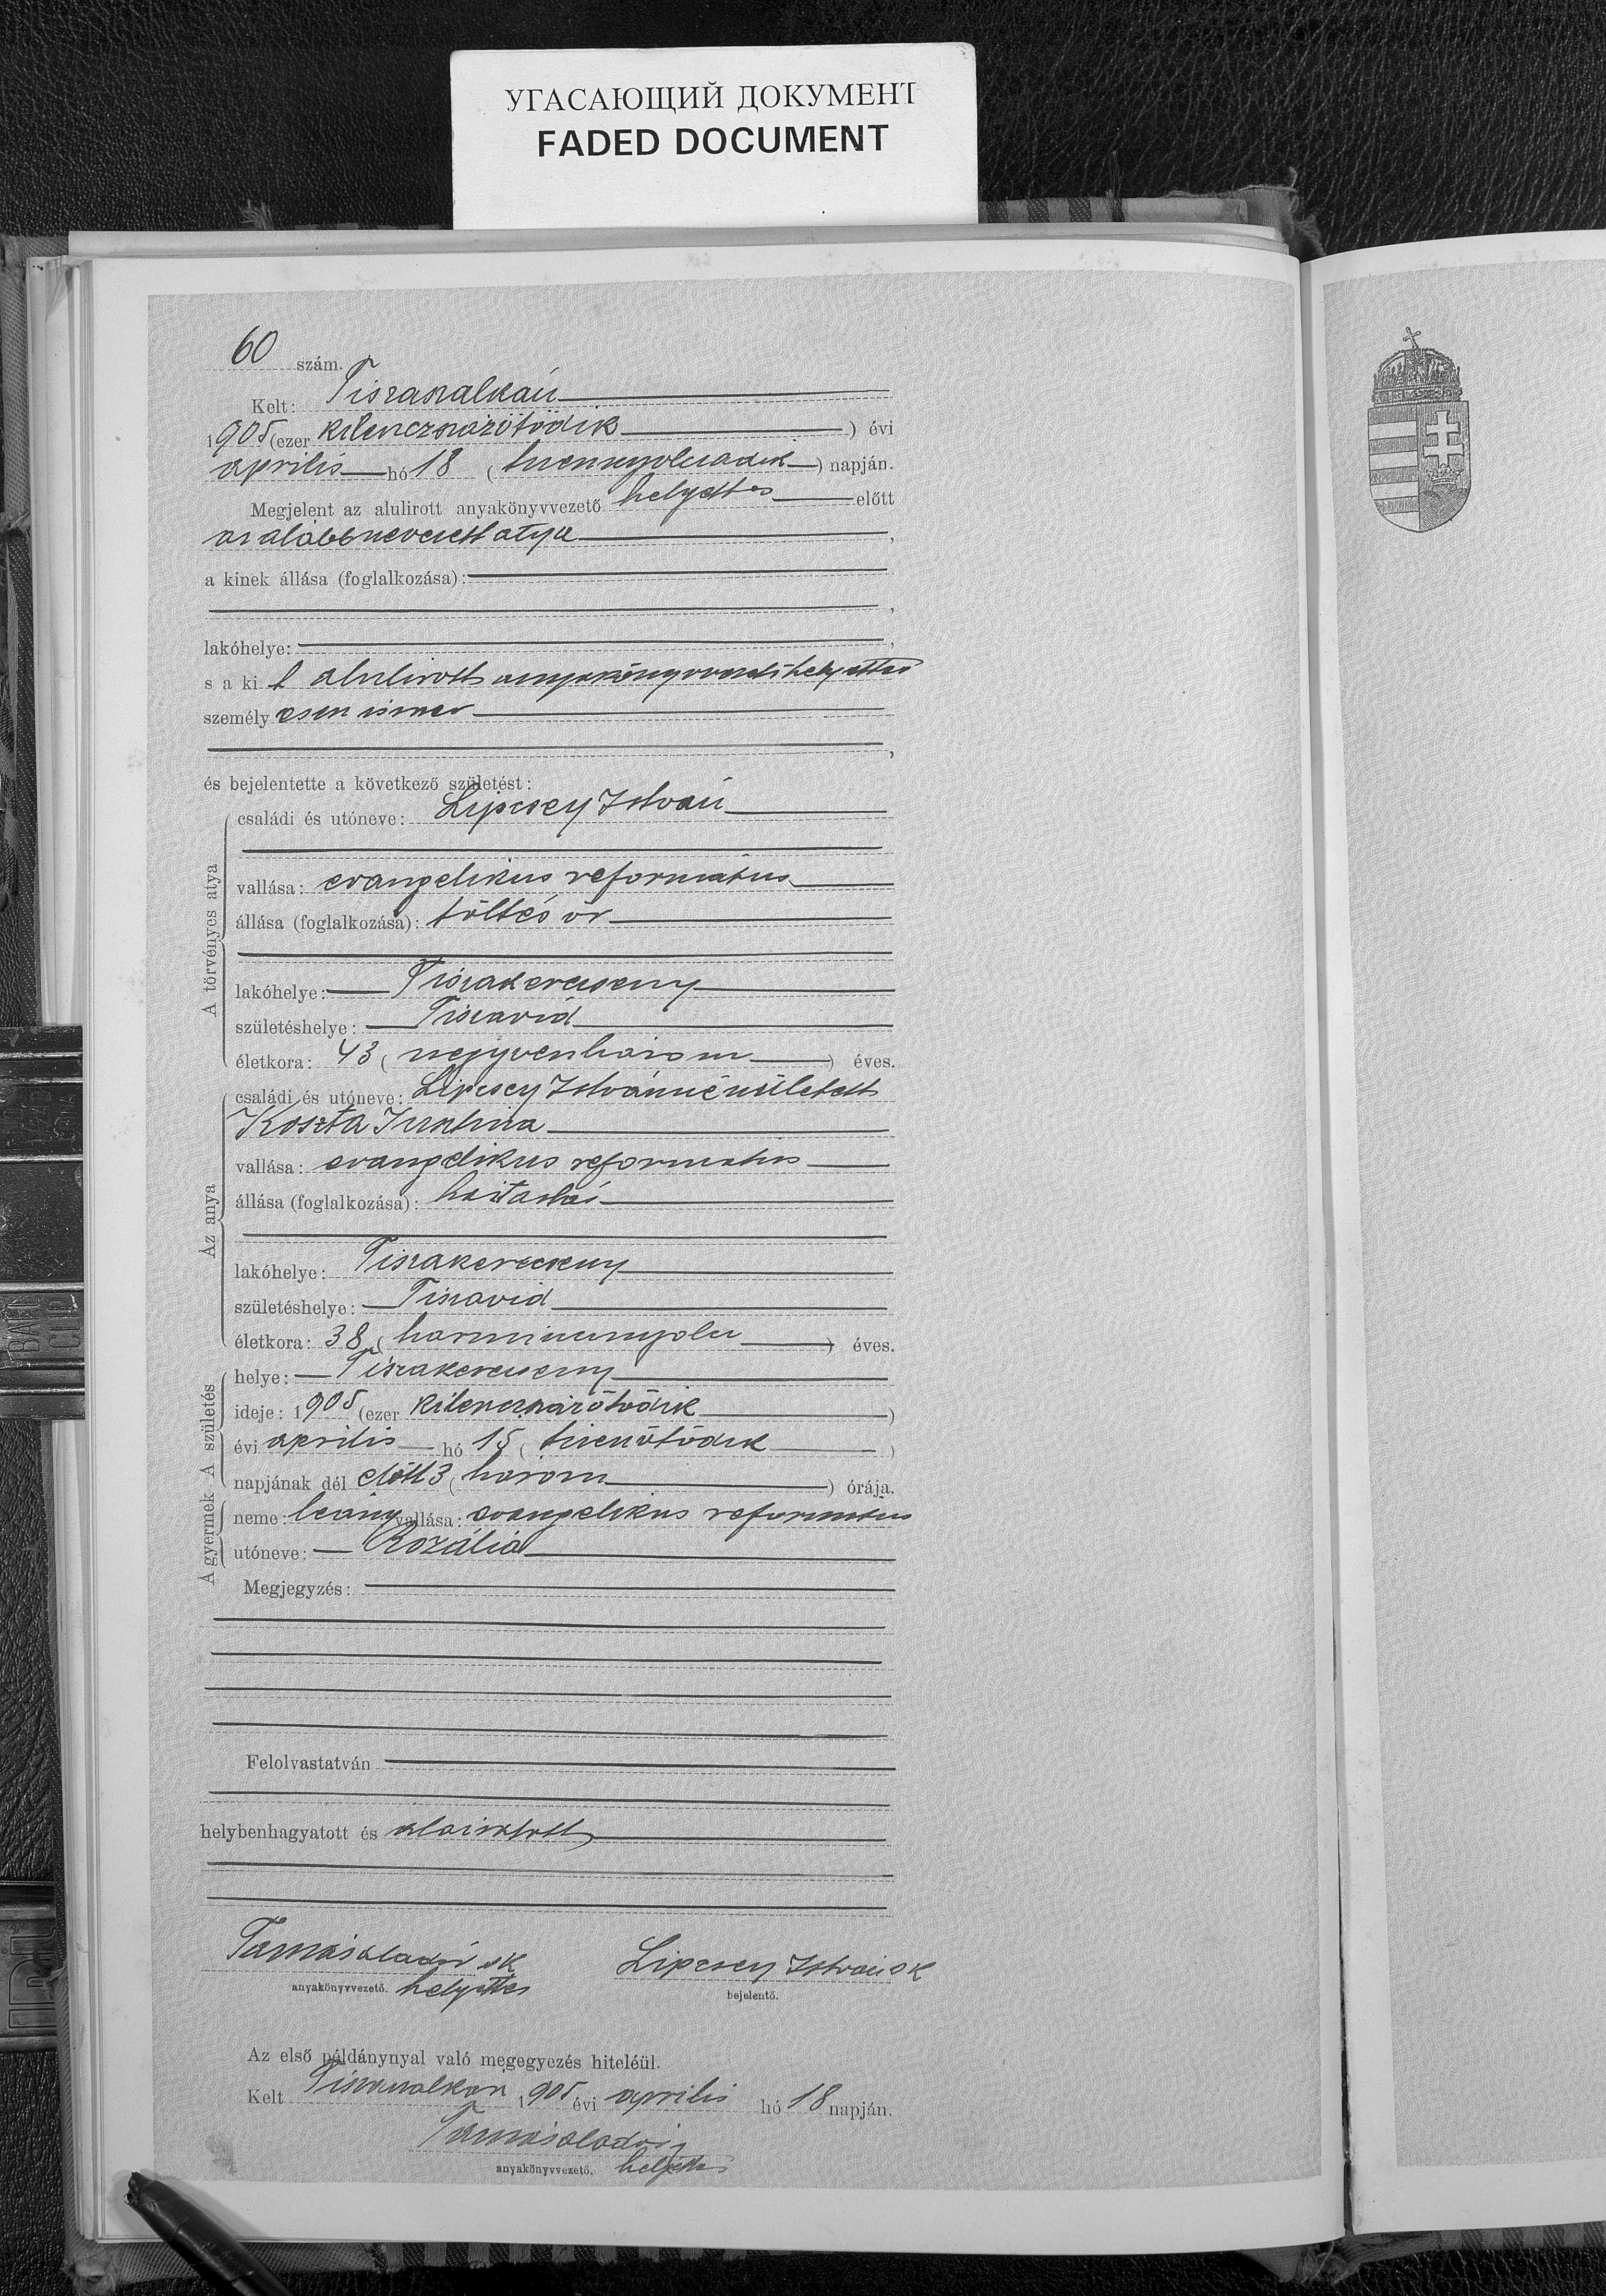 УГАСАЮЩИЙ ДОКУМЕНТ
FADED DOCUMENT
60 szám.
Kelt: Tiszaszalkán
1905 (ezer kilenczszázötödik) évi
április hó 18 (tizennyolczadik) napján.
Megjelent az alulirott anyakönyvvezető helyettes előtt
az alább nevezett atya,
a kinek állása (foglalkozása):
,
lakóhelye: ,
s a kit alulirott anyakönyvvezető helyettes
személyesen ismer
,
és bejelentette a következő születést:
A törvényes atya
családi és utóneve: Lipcsey István
vallása: evangelikus református
állása (foglalkozása): töltés őr
lakóhelye: Tiszakerecseny
születéshelye: Tiszavid
életkora: 43 (negyvenhárom) éves.
Az anya
családi és utóneve: Lipcsey Istvánné született
Koszta
vallása: evangelikus református
állása (foglalkozása): háztartási
lakóhelye: Tiszakerecseny
születéshelye: Tiszavid
életkora: 38 (harmincznyolcz) éves.
A születés
helye: Tiszakerecseny
ideje: 1905 (ezer kilenczszázötödik)
évi április hó 15 (tizenötödik)
napjának dél előtt 3 (három) órája.
A gyermek
neme: leány vallása: evangelikus református
utóneve: Rozália
Megjegyzés:
Felolvastatván
helybenhagyatott és aláiratott
Tamás Aladár sk
anyakönyvvezető. helyettes
Lipcsey István sk
bejelentő.
Az első példánynyal való megegyezés hiteléül.
Kelt Tiszaszalkán 1905 évi április hó 18 napján.
Tamás Aladár
anyakönyvvezető. helyettes